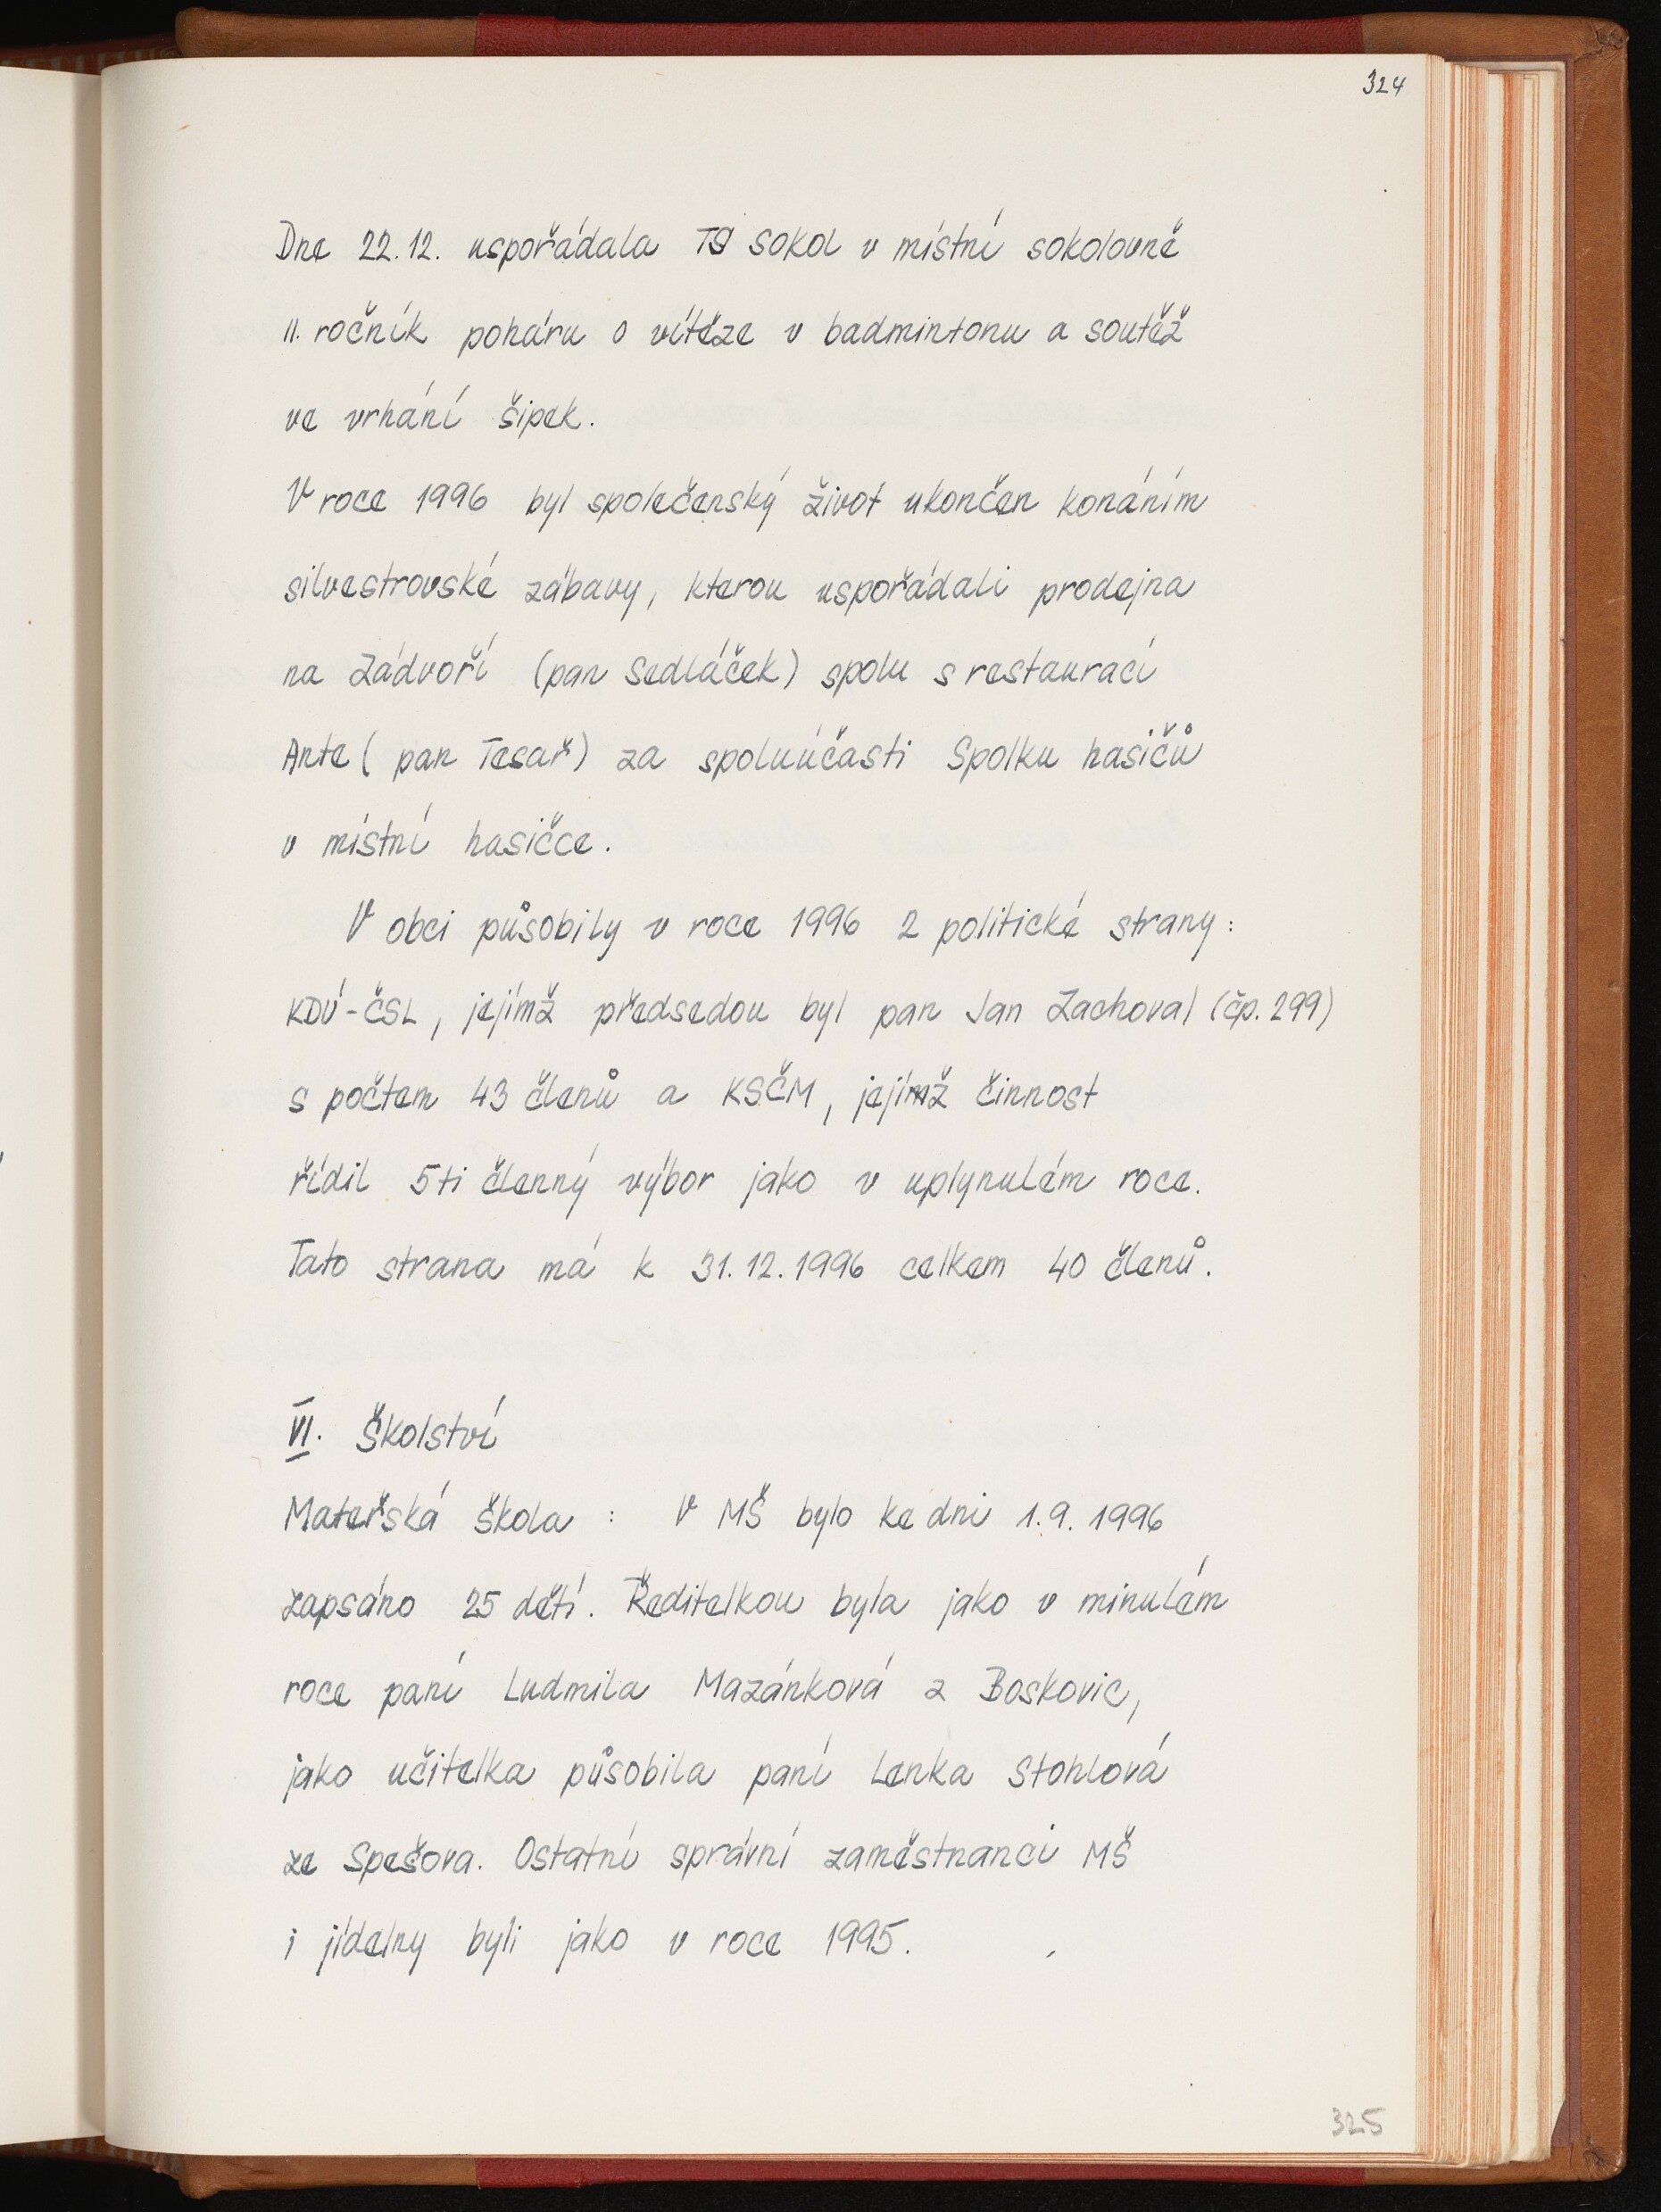 324
Dne 22.12. uspořádala TJ SOKOL v místní sokolovně
II. ročník poháru o vítěze v badmintonu a soutěž
ve vrhání šipek.
V roce 1996 byl společenský život ukončen konáním
silvestrovské zábavy, kterou uspořádali prodejna
na Zádvoří (pan Sedláček) spolu s restaurací
Ante ( pan Tesař) za spoluúčasti Spolku hasičů
v místní hasičce.
V obci působily v roce 1996 2 politické strany:
KDÚ-ČSL, jejímž předsedou byl pan Jan Zachoval (čp. 299)
s počtem 43 členů a KSČM, jejímž činnost
řídil 5ti členný výbor jako v uplynulém roce.
Tato strana má k 31.12.1996 celkem 40 členů.
VI. Školství
Mateřská škola : V MŠ bylo ke dni 1.9. 1996
zapsáno 25 dětí. Ředitelkou byla jako v minulém
roce paní Ludmila Mazánková z Boskovic,
jako učitelka působila paní Lenka Stohlová
ze Spešova. Ostatní správní zaměstnanci MŠ
i jídelny byli jako v roce 1995.
325